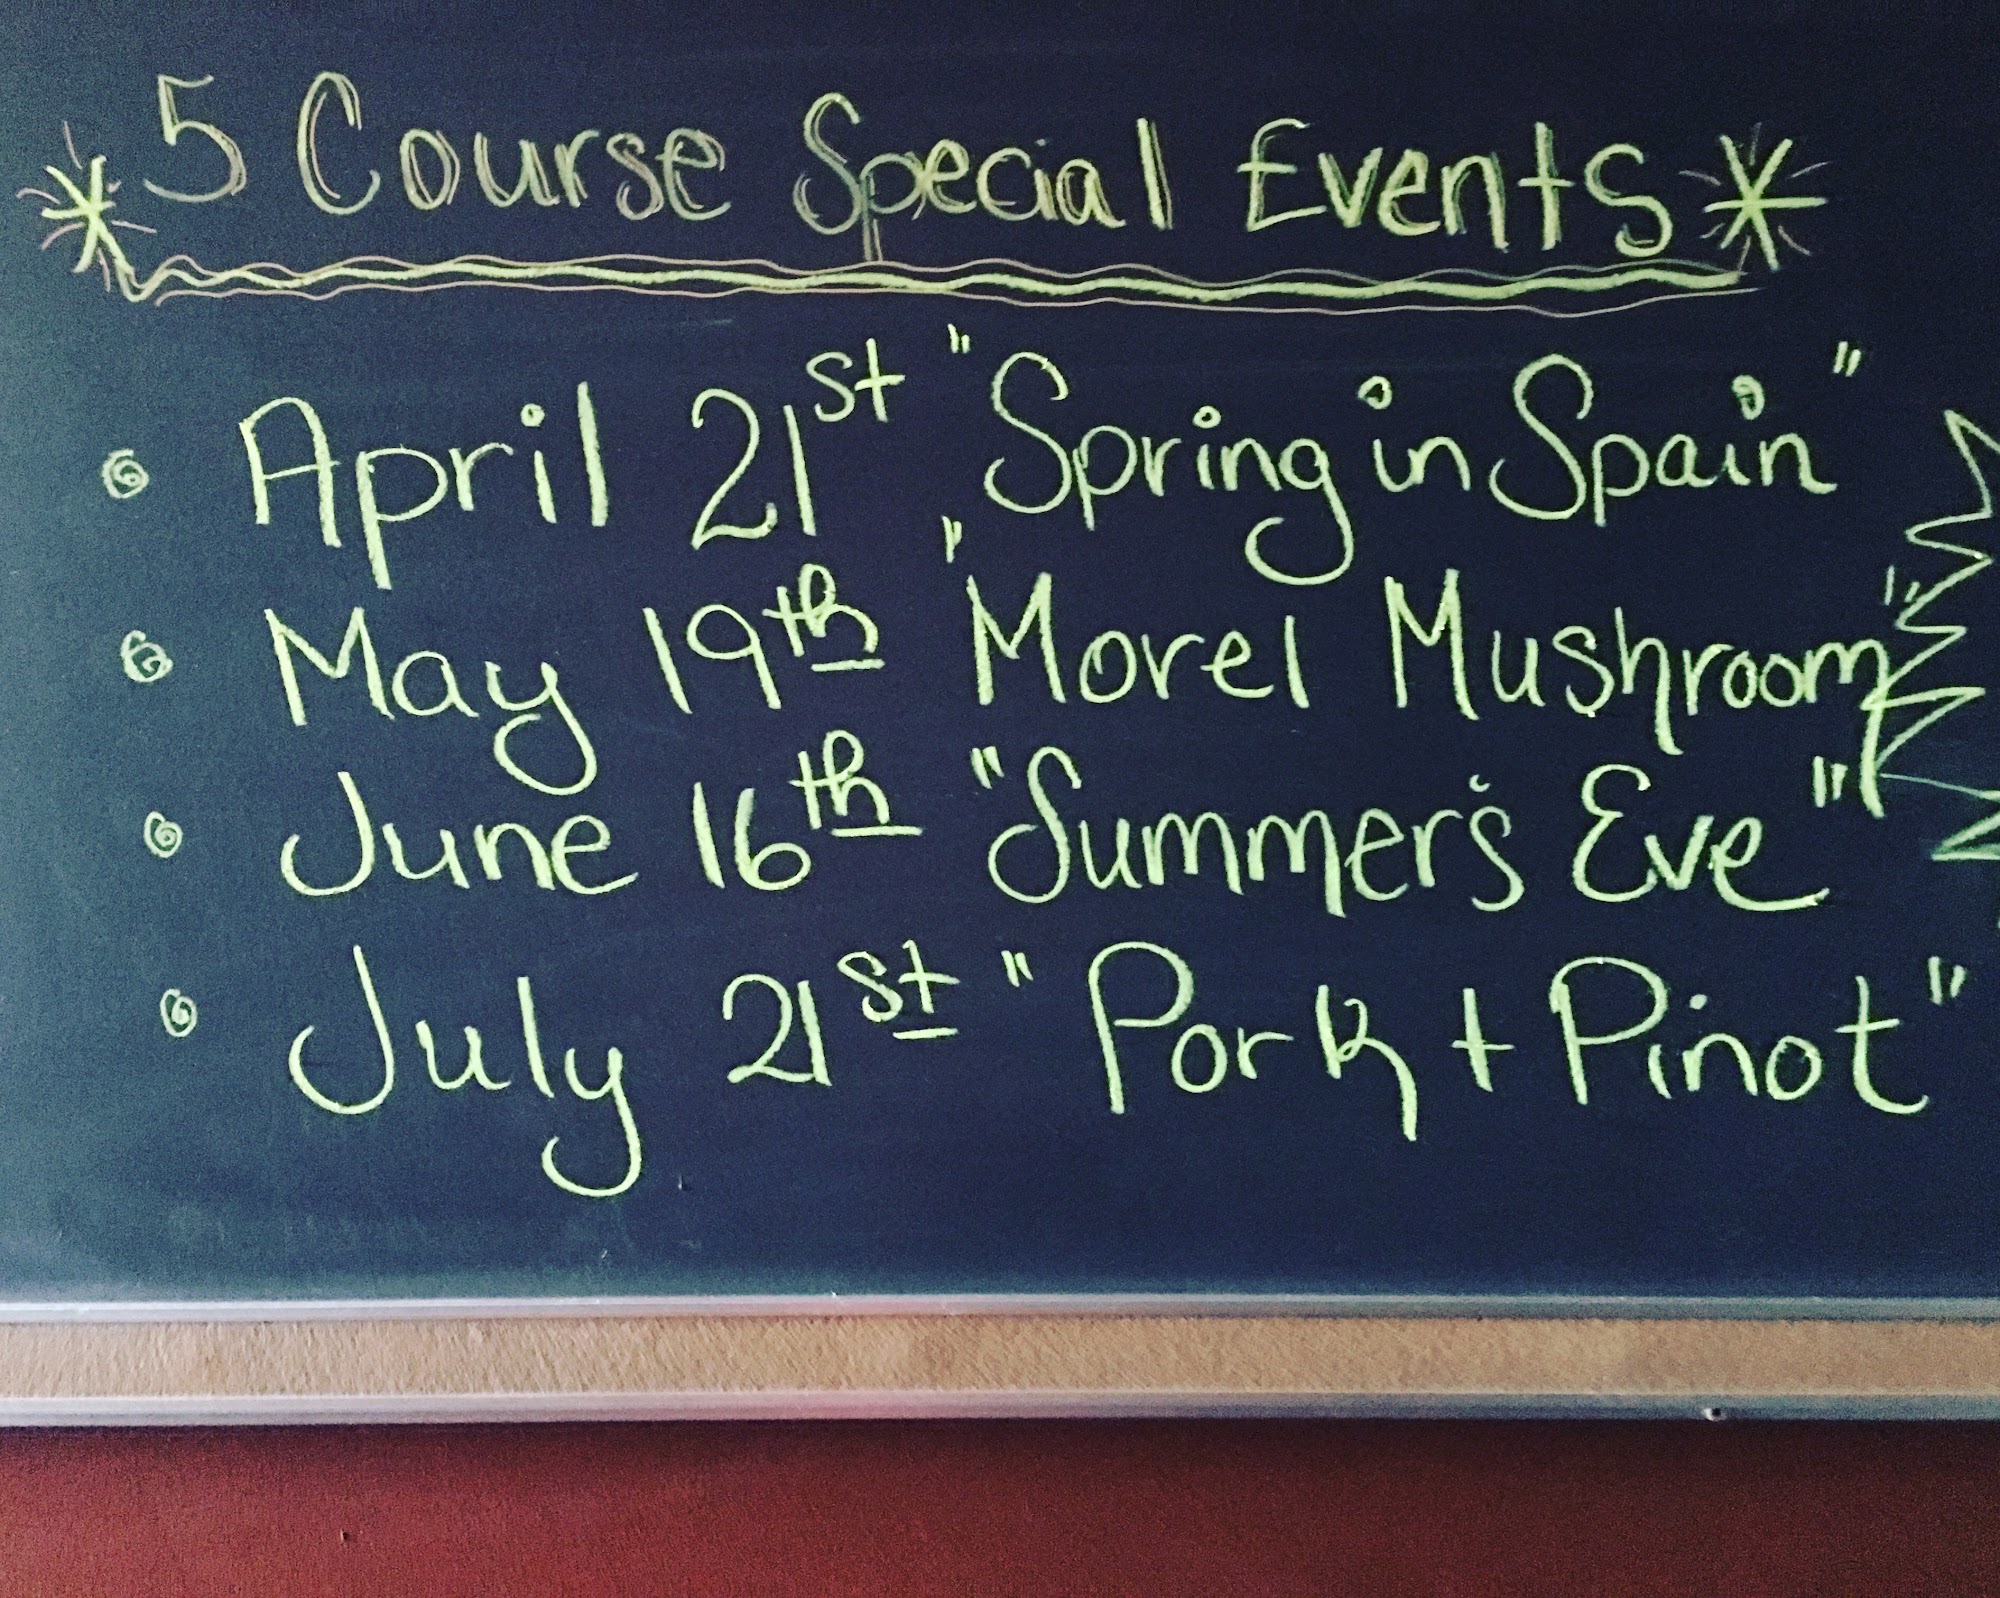 5 Course Special Events
April 21st "Spring in Spain"
May 19th "Morel Mushroom"
June 16th "Summer's Eve"
July 21st "Pork + Pinot"